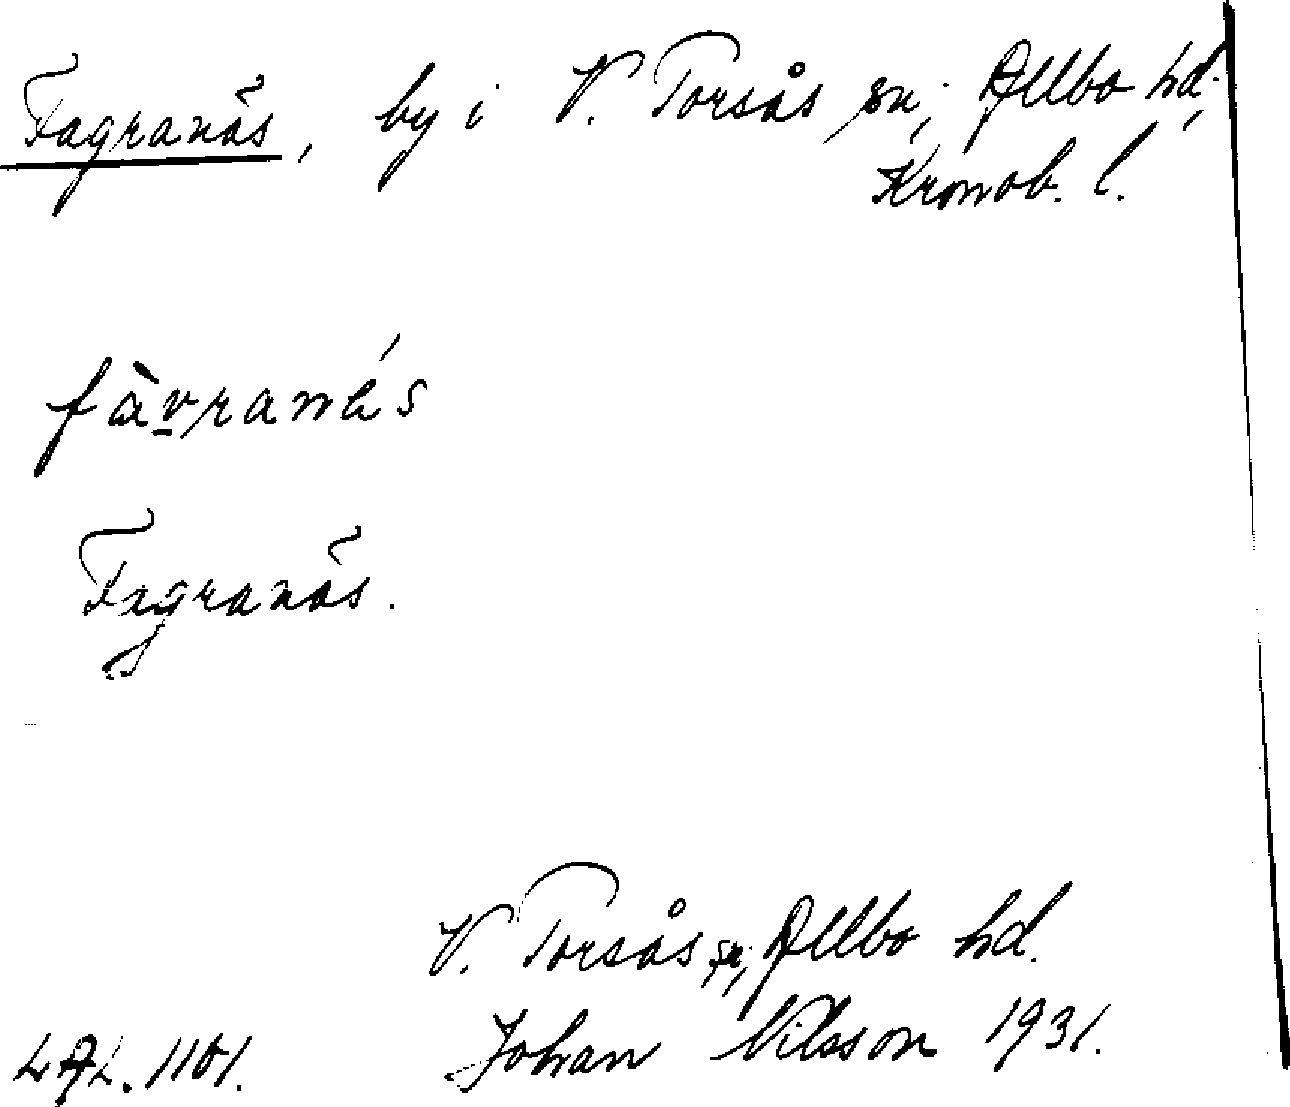 Fagranäs, by i V. Torsås sn, Allbo hd,
Kronob. l.
fàvranǽs
Fagranäs.
V. Torsås sn, Allbo hd.
LAL. 1101. Johan Nilsson 1931.